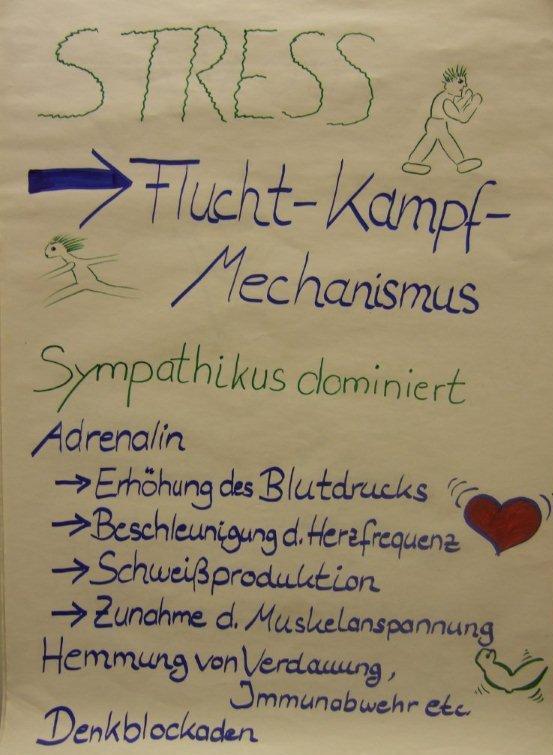 STRESS
Flucht-Kampf-
Mechanismus
Sympathikus dominiert
Adrenalin
→ Erhöhung des Blutdrucks
→ Beschleunigung d. Herzfrequenz
→ Schweißproduktion
→ Zunahme d. Muskelanspannung
Hemmung von Verdauung,
Immunabwehr etc.
Denkblockaden